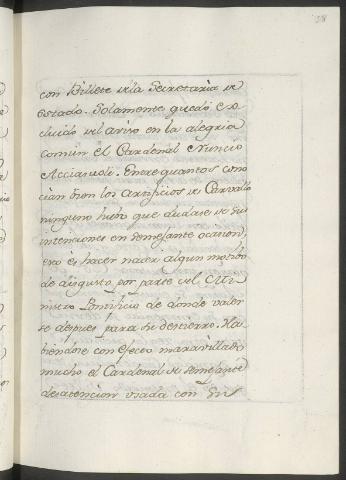 38
con Billete de la Secretaria de
estado. Solamente quedó ex
cluido del aviso en la alegria
comun el Cardenal Nuncio
Acciauoli. Entre quantos cono
cian bien los artificios de Carvallo
ninguno hubo que dudase de sus
intensiones en semejante ocasion,
esto es, hacer nacer algun motivo
de disgusto por parte del Mi
nistro Pontificio de donde valer
se despues para su destierro. Ha
biendose con efecto maravillado
mucho el Cardenal de semejante
desatencion usada con su